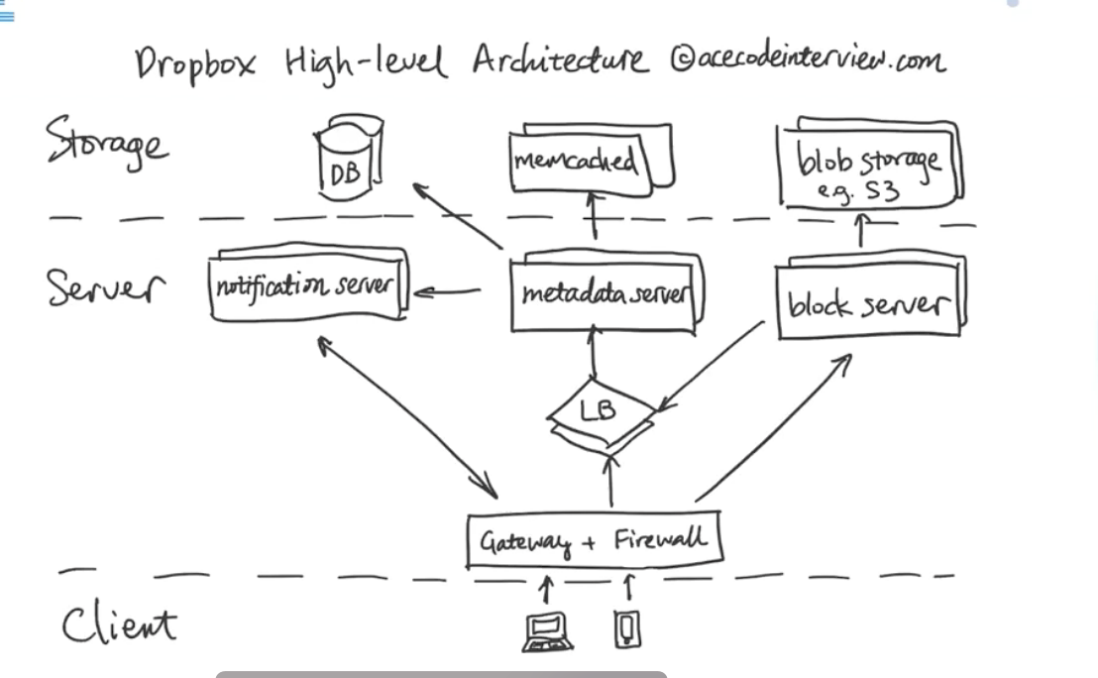 Dropbox High-level Architecture @acecodeinterview.com
Storage
DB
memcached
blob storage
e.g. S3
Server
notification server
metadata server
block server
LB
Gateway + Firewall
Client